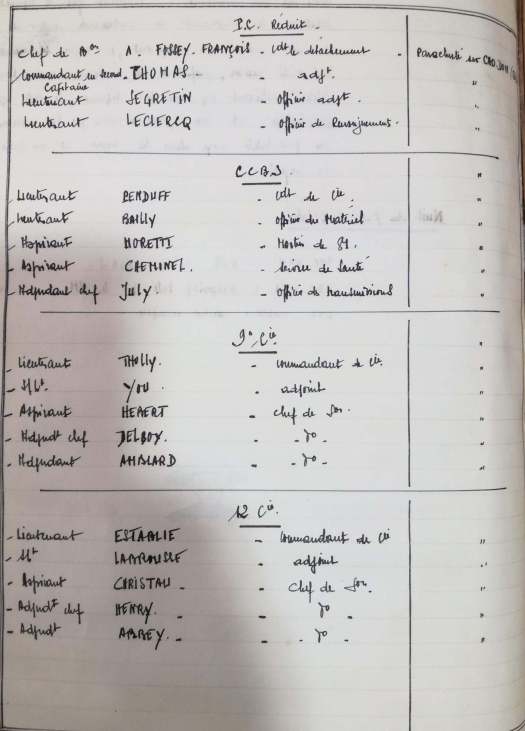 P.C. Réduit.
Chef de Bon A. FOSSEY. FRANÇOIS - Cdt le détachement - Parachuté sur CAO.
Commandant en second THOMAS - adjt. "
Capitaine
Lieutenant SEGRETIN - Officier adjt. "
Lieutenant LECLERCQ - Officier de Renseignement. "
CCB3 "
- Lieutenant BENDUFF - Cdt de Cie. "
- Lieutenant BAILLY - Officier du Matériel "
- Aspirant MORETTI - Mortier de 81. "
- Aspirant CHEMINEL. - Service de Santé "
- Adjudant chef JULY - Officier des transmissions "
9e Cie. "
- Lieutenant THOLLY. - Commandant de Cie. "
- S/Lt. YOU. - adjoint "
- Aspirant HEBERT - Chef de Son. "
- Adjudt chef DELBOY. - do - "
- Adjudant AMBLARD - do - "
12 Cie.
- Lieutenant ESTABLIE - Commandant de Cie "
- S/Lt LARROUSSE - adjoint "
- Aspirant CHRISTAU - - Chef de Son. "
- Adjudt chef HENRY. - - do - "
- Adjudt ABBEY. - - do - "